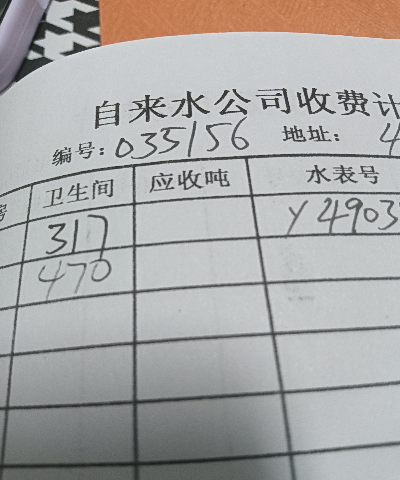 自来水公司收费计
编号: 035156 地址: 4
房 卫生间 应收吨 水表号
317 Y4903
470